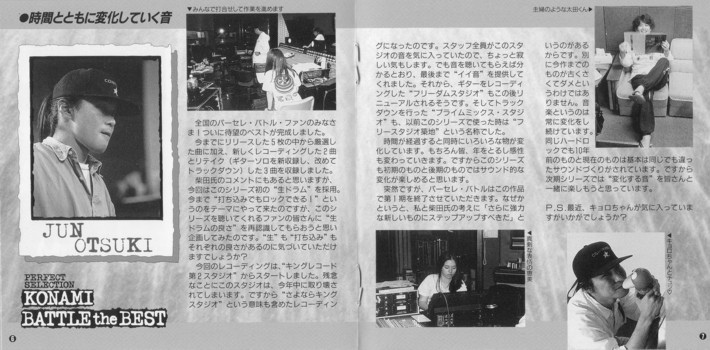 ●時間とともに変化していく音
▼みんなで打合せして作業を進めます
JUN
OTSUKI
PERFECT
SELECTION
KONAMI
BATTLE the BEST
6
全国のパーセレ・バトル・ファンのみなさ
ま！ついに待望のベストが完成しました。
今までにリリースした5枚の中から厳選し
た曲に加え、新しくレコーディングした2曲
とリテイク（ギターソロを新収録し、改めて
トラックダウン）した3曲を収録しました。
柴田氏のコメントにもあると思いますが、
今回はこのシリーズ初の"生ドラム"を採用。
今まで"打ち込みでもロックできる！"とい
うのをテーマにやって来たのですが、このシ
リーズを聴いてくれるファンの皆さんに"生
ドラムの良さ"を再認識してもらおうと思い
企画してみたのです。"生"も"打ち込み"も
それぞれの良さがあるのに気づいていただけ
ますでしょうか？
今回のレコーディングは、"キングレコード
第2スタジオ"からスタートしました。残念
なことにこのスタジオは、今年中に取り壊さ
れてしまいます。ですから"さよならキング
スタジオ"という意味も含めたレコーディン
グになったのです。スタッフ全員がこのスタ
ジオの音を気に入っていたので、ちょっと寂
しい気もします。でも音を聴いてもらえば分
かるとおり、最後まで"イイ音"を提供して
くれました。それから、ギターをレコーディ
ングした"フリーダムスタジオ"もこの後リ
ニューアルされるそうです。そしてトラック
ダウンを行った"プライムミックス・スタジ
オ"も、以前このシリーズで使った時は"フ
リースタジオ築地"という名称でした。
時間が経過すると同時にいろいろな物が変
化しています。もちろん皆、年をとるし感性
も変わっていきます。ですからこのシリーズ
も初期のものと後期のものではサウンド的な
変化が楽しめると思います。
突然ですが、パーセレ・バトルはこの作品
で第Ⅰ期を終了させていただきます。なぜか
というと、私と柴田氏の考えに「さらに強力
な新しいものにステップアップすべきだ」と
主婦のような太田くん▶
いうのがある
からです。別
に今作までの
ものが古くさ
くてダメとい
うわけではあ
りません。音
楽というのは
常に変化をし
続けています。
同じハードロ
ックでも10年
前のものと現在のものは基本は同じでも違っ
たサウンドづくりがされています。ですから
次期シリーズでは"変化する音"を皆さんと
一緒に楽しもうと思っています。
P.S. 最近、キョロちゃんが気に入っていま
すがいかがでしょうか？
7